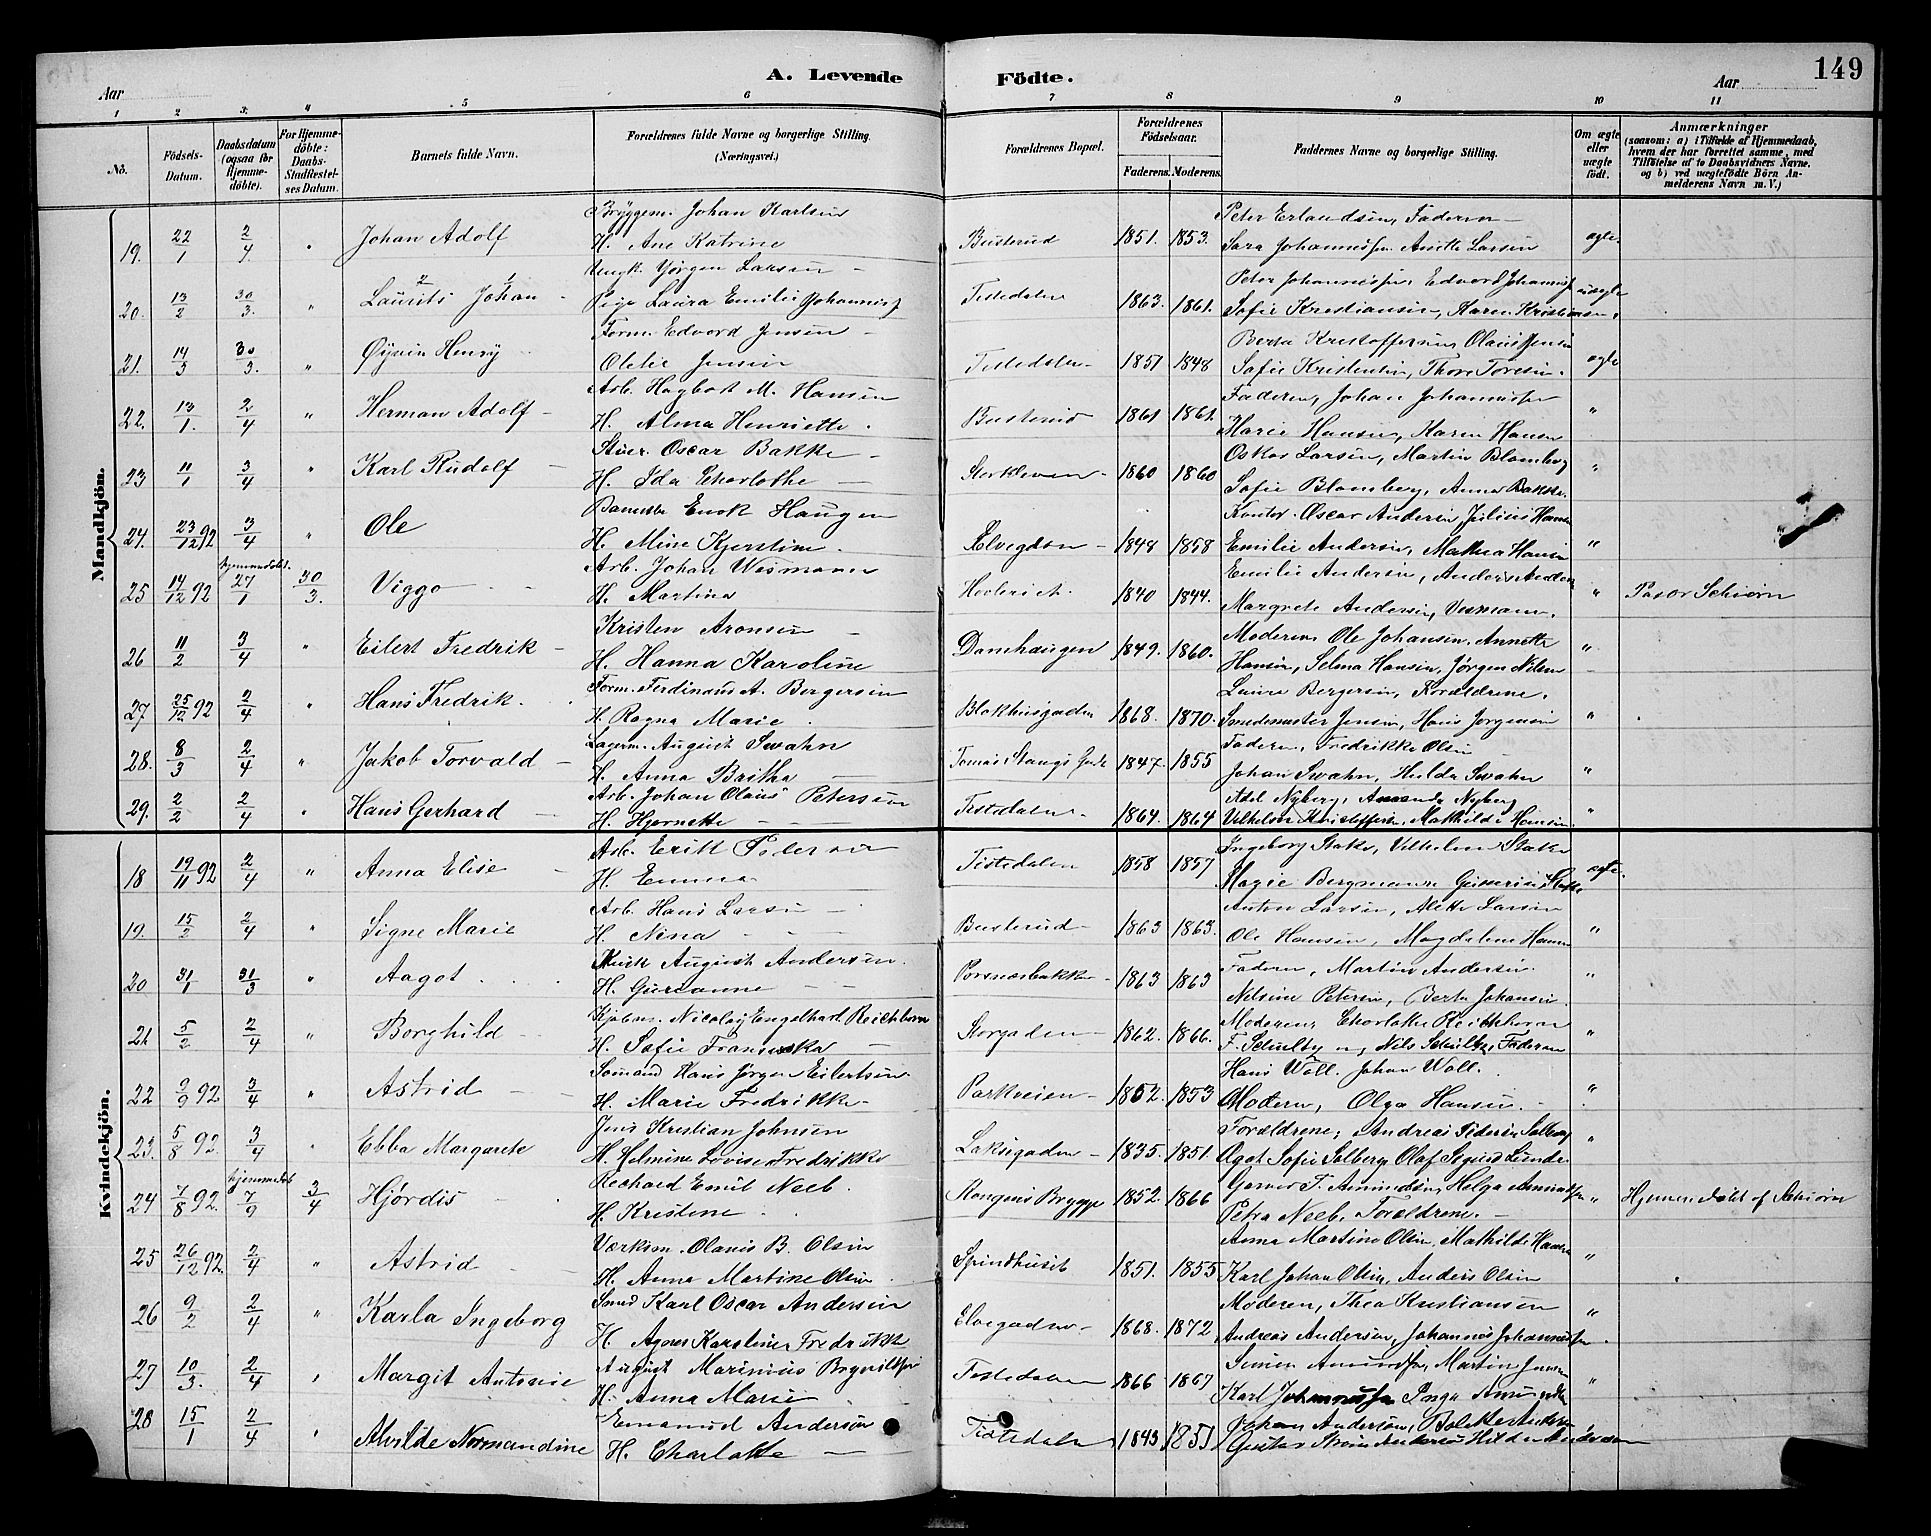 149
A. Levende Födte.
Aar
Aar
1 2 3. 4 5 6 7 8 9 10 11
No.
Födsels-Datum.
Daabsdatum (ogsaa for Hjemmedöbte).
For Hjemmedöbte: Daabs-Stadfæstelses Datum.
Barnets fulde Navn.
Forældrenes fulde Navne og borgerlige Stilling. (Næringsvei.)
Forældrenes Bopæl.
Forældrenes Födselsaar.
Faderens. Moderens.
Faddernes Navne og borgerlige Stilling.
Om ægte eller uægte födt.
Anmærkninger
(saasom: a) i Tilfælde af Hjemmedaab, hvem der har forrettet samme, med Tilföielse af to Daabsvidners Navne, og b) ved uægtefödte Börn Anmelderens Navn m. V.)
Mandkjön.
Bryggem. Johan Karlsen Peter Erlandsen, Faderen
19. 22/1 2/4 " Johan Adolf H. Ane Katrine Busterud 1851. 1853. Sara Johannesen Anette Larsen ægte
Ungk. Jörgen Larsen Peter Johannessen, Edvard Johannes
20. 13/2 30/3. " Laurits Johan Pige Laura Emilie Johannes Tistedalen 1863. 1861. Sofie Kristiansen, Karen Kristiansen. uægte
Form. Edvard Jensen Berta Kristoffersen Olaus Jensen
21. 14/3 30/3. " Öyvin Henry Oletie Jensen Tistedalen 1851 1848 Sofie Kristensen, Thore Toresen. ægte
Arb. Hagbart M. Hansen Faderen, Johan Johannesen
22. 13/1. 2/4 " Herman Adolf H. Alma Henriette. Busterud 1861 1861. Marie Hansen, Karen Hansen "
Stuer. Oscar Bakke Oskar Larsen, Martin Blomberg
23 11/1 3/4 " Karl Rudolf H. Ida Charlothe Storkleven 1860 1860 Sofie Blomberg, Anna Bakke. "
Enok Haugen Kontor. Oscar Andersen Julius Hansen
24. 23/12 92 3/4 " Ole H. Mine Kjerstine. Elvegaden 1848 1858 Emilie Andersen, Mathea Hansen "
hjemmedöbt. Arb. Johan Wismann Emilie Andersen, Anders Andersen
25 14/12 92 27/1 30/3. Viggo H. Martina 1840 1844. Margrete Andersen, Vismann. " Pastor Schiörn
Kristen Aronsen Moderen, Ole Johansen. Annette
26 11/2 3/4 " Eilert Fredrik H. Hanna Karoline Damhaugen 1849. 1860. Hansen, Selma Hansen, Jörgen Nilsen "
Form. Ferdinand A. Bergersen Laura Bergersen, Forældrene.
27 25/12 92 2/4 " Hans Fredrik. H. Ragna Marie. Blokhusgaden 1868. 1870. Smedmester Jensen, Hans Jörgensen "
Lagerm. August Swahn Faderen, Fredrikke Olsen
28. 8/3 2/4 " Jakob Torvald H. Anna Britha Tomas Stangs Gade 1847. 1855 Johan Swahn, Hulda Swahn "
Arb. Johan Olaus Petersen Adel Nyberg, Amanda Nyberg
29. 2/2 2/4 " Hans Gerhard H. Hjernette Tistedalen. 1864. 1864 Vilhelm Kristoffersen, Mathilde Hansen. "
Kvindekjön.
Arb. Erik Pedersen Ingeborg Stake, Vilhelm Stake
18 19/11 92 2/4 " Anna Elise H. Emma Tistedalen 1858 1857 Magie Bergmann ægte.
Arb. Hans Larsen Anton Larsen, Alette Larsen
19. 15/2 2/4 " Signe Marie H. Nina Busterud 1863 1863. Ole Hansen, Magdalene Hansen "
August Andersen. Faderen, Martin Andersen.
20 31/1 31/3 " Aagot. H. Gurianne Porsnæsbakken 1863 1863 Nilsine Petersen, Berta Johansen. "
Kjöbm. Nicolay Engelhart Reichborn Moderen, Charlotte Reichborn
21. 5/2 2/4 " Borghild H. Sofie Franseska Storgaden 1862. 1866. F. Schulty, Nils Schulty, Faderen "
Sömand Hans Jörgen Eilertsen. Hans Woll. Johan Woll.
22 9/9 92. 3/4 " Astrid H. Marie Fredrikke Parkveien 1852. 1853 Moderen, Olga Hansen. "
Jens Kristian Johnsen Forældrene, Andreas Pedersen Solberg
23. 5/8 92. 3/4 " Ebba Margarete H. Helmine Lovise Fredrikke Laksegaden 1835. 1851. Agot Sofie Solberg, Olaf Sigurd Lunde. "
hjemmedöb Rechard Emil Neeb. Garver T. Amundsen, Helga Amundsen
24 7/8 92. 7/9 3/4 Hjördis H. Kristine. Rangens Brygge 1852. 1866 Petra Neeb, Forældrene. " Hjemmedöbt af Schiörn
Værksm. Olaus B. Olsen Anna Martine Olsen, Mathilde Hansen
25 26/12 92. 2/4 " Astrid H. Anna Martine Olsen. Spindhuset 1851. 1855 Karl Johan Olsen, Anders Olsen "
Smed Karl Oscar Andersen Moderen, Thea Kristiansen
26 9/2 2/4 " Karla Ingeborg H. Agnes Karoline Fredrikke Elvegaden 1868. 1872 Andreas Andersen, Johannes Johannessen. "
August Marinius Simen Amundsen, Martin Jensen
27 10/3. 2/4 " Margit Antonie H. Anna Marie Tistedalen 1866 1867 Karl Johannessen Inga Amundsen "
Emanuel Andersen Johan Andersen, Bolette Andersen
28 15/1 2/4 " Alvilde Normandine H. Charlotte Tistedalen 1843 1851 Gustav Andersen Hilda Andersen "